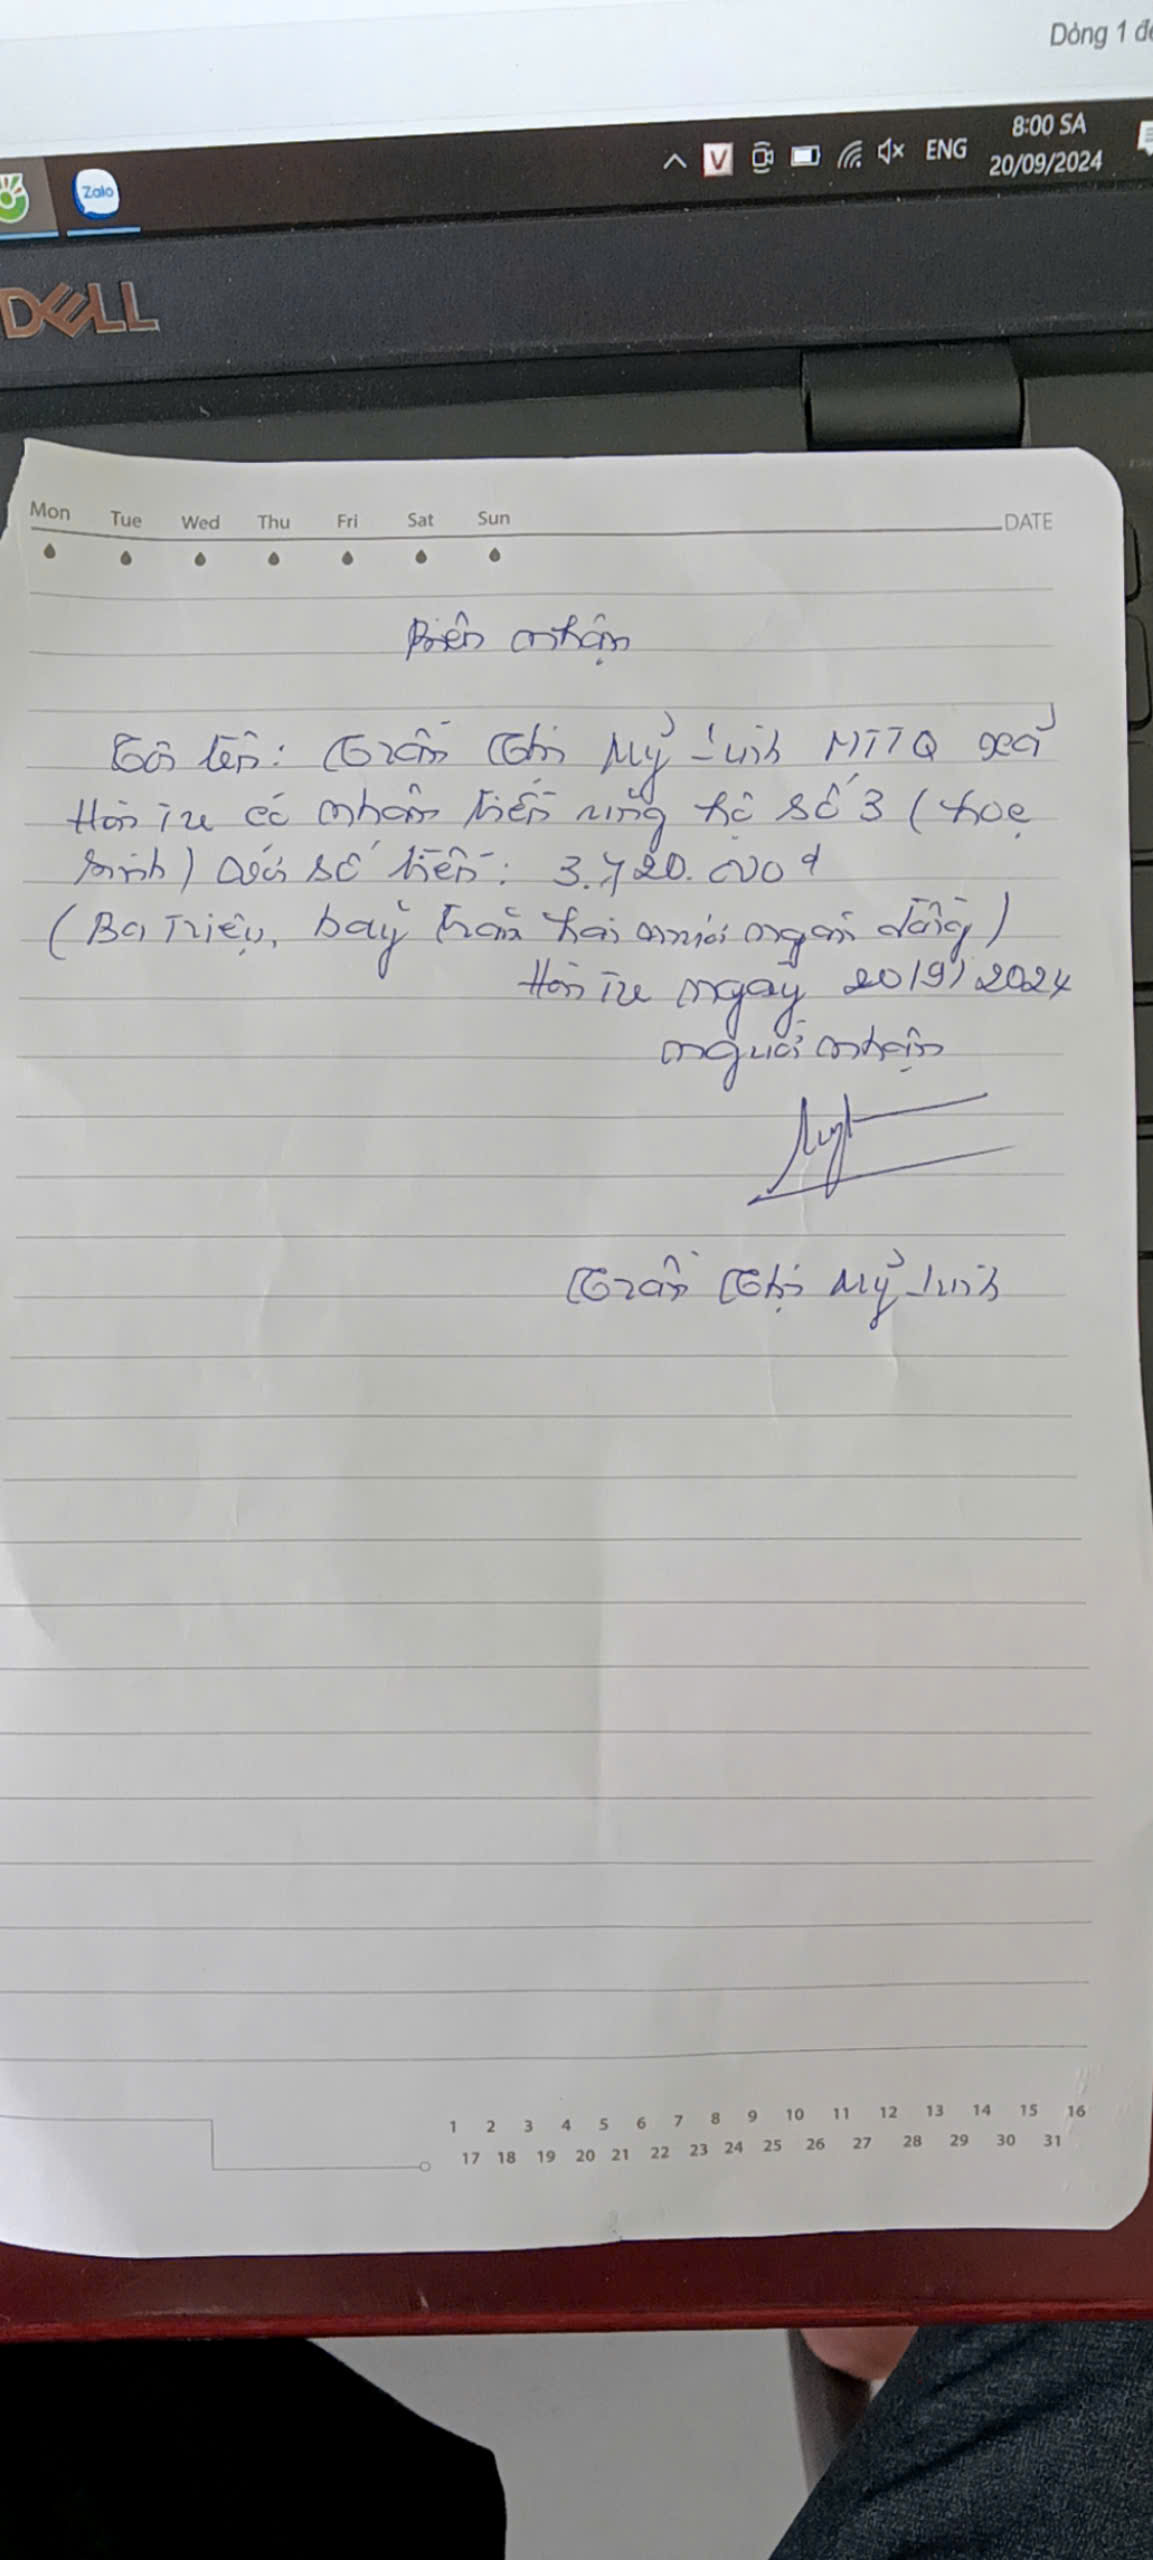 Dòng 1 đế
8:00 SA
ENG
20/09/2024
Zalo
DELL
Mon Tue Wed Thu Fri Sat Sun DATE
Biên nhận
Tôi tên: Trần Thị Mỹ Linh MTTQ xã
Hòn Tre có nhận tiền ủng hộ số 3 (học
sinh) với số tiền: 3.720.000đ
(Ba Triệu, bảy trăm hai mươi ngàn đồng)
Hòn Tre ngày 20/9/2024
người nhận
Trần Thị Mỹ Linh
1 2 3 4 5 6 7 8 9 10 11 12 13 14 15 16
17 18 19 20 21 22 23 24 25 26 27 28 29 30 31